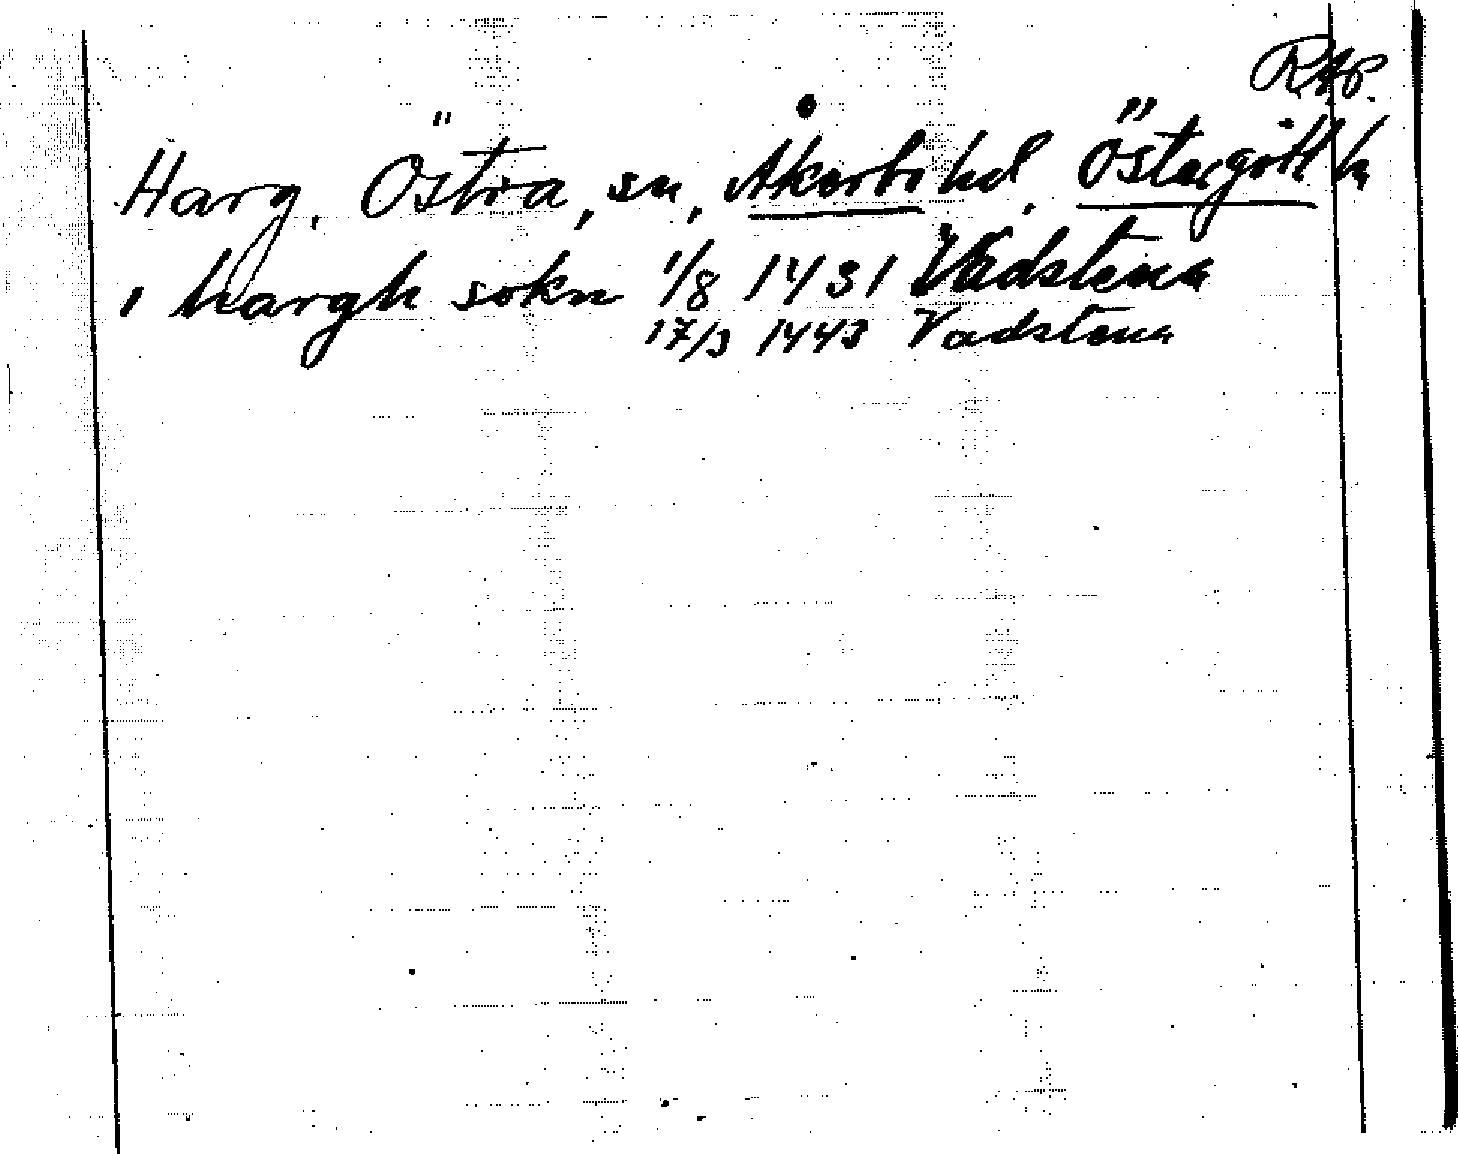 RAp.
Harg, Östra, sn, Åkerbo hd, Östergötl ln
i hargh sokn 1/8 1431 Vadstena
17/3 1443 Vadstena